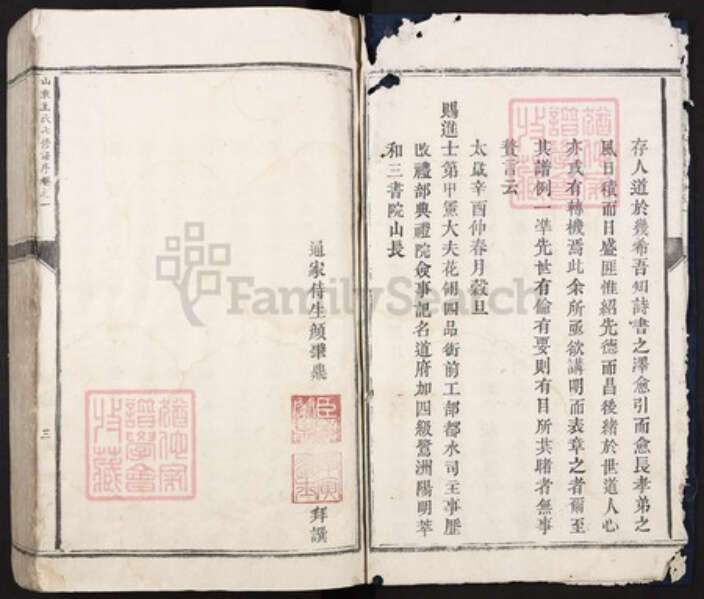 存人道於幾希吾知詩書之澤愈引而愈長孝弟之
風日積而日盛匪惟紹先德而昌後緒於世道人心
亦或有轉機焉此余所亟欲講明而表章之者爾至
其譜例一準先世有倫有要則有目所共睹者無事
贅言云
太歲辛酉仲春月穀旦
賜進士第中憲大夫花翎四品銜前工部都水司主事歷
改禮部典禮院僉事記名道府加四級鷺洲陽明萃
和三書院山長
通家侍生顏 拜譔
山東王氏七修譜序 卷之一
三
譜學會
收藏
FamilySearch